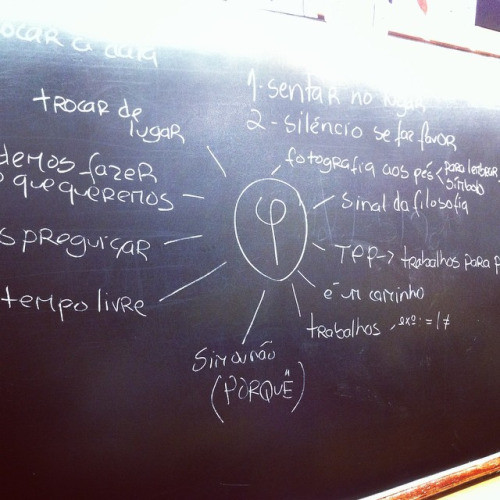 ocar a cara
trocar de
lugar
demos fazer
o que queremos
s preguiçar
tempo livre
1- sentar no lugar
2- silêncio se faz favor
fotografia aos pés
para lembrar
símbolo
sinal da filosofia
TPP -> trabalhos para p
é um caminho
trabalhos , exº: = / ≠
φ
Sim ou não
(PORQUÊ)